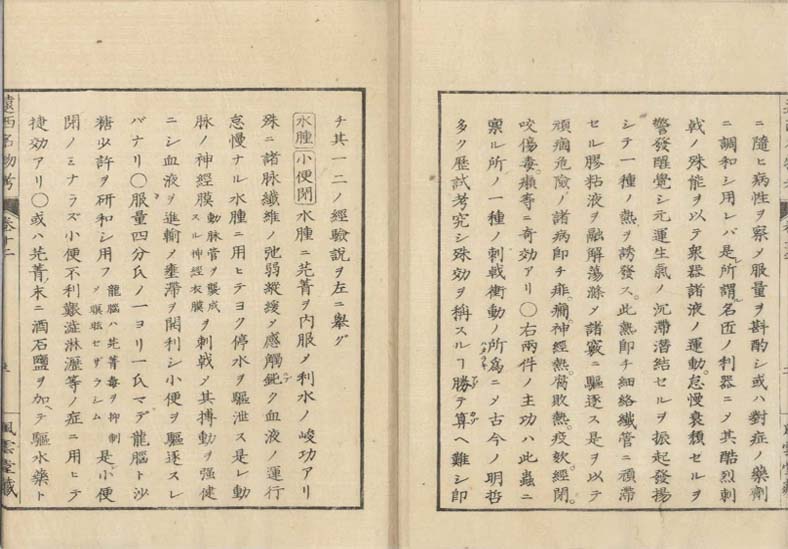 ニ隨ヒ病性ヲ察メ服量ヲ斟酌シ或ハ對症ノ藥劑
ニ調和シ用レバ是所謂名匠ノ利器ニメ其酷烈刺
戟ノ殊能ヲ以テ衆器諸液ノ運動怠慢衰頽セルヲ
警發醒覺シ元運生氣ノ沉滯潛結セルヲ振起發揚
シテ一種ノ熱ヲ誘發ス此熱即チ細絡纖管ニ頑滯
セル膠粘液ヲ融解蕩滌メ諸竅ニ驅逐ス是ヲ以テ
頑痼危險ノ諸病即チ痱癇神經熱腐敗熱疫欬經閉
咬傷毒癩等ニ奇効アリ○右兩件ノ主功ハ此蟲ニ
禀ル所ノ一種ノ刺戟衝動ノ所爲ニメ古今ノ明哲
多ク歷試考究シ殊効ヲ稱スルヿ勝テ算ヘ難シ即
チ其一二ノ經驗說ヲ左ニ擧グ
水腫 小便閉 水腫ニ芫菁ヲ内服メ利水ノ峻功アリ
殊ニ諸脉纖維ノ弛弱縱緩メ感觸鈍ク血液ノ運行
怠慢ナル水腫ニ用ヒテヨク停水ヲ驅泄ス是レ動
脉ノ神經膜動脉管ヲ襲成スル神經衣膜ヲ刺戟メ其搏動ヲ强健
ニシ血液ヲ進輸メ壅滯ヲ開利シ小便ヲ驅逐スレ
バナリ○服量四分氏ノ一ヨリ一氏マデ龍腦ト沙
糖少許ヲ研和シ用フ龍腦ハ芫菁毒ヲ抑制メ瞑眩セザラシム是小便
閉ノミナラズ小便不利艱澁淋瀝等ノ症ニ用ヒテ
捷効アリ○或ハ芫菁末ニ酒石鹽ヲ加テ驅水藥ト
遠西名物考 卷十二
風雲堂藏